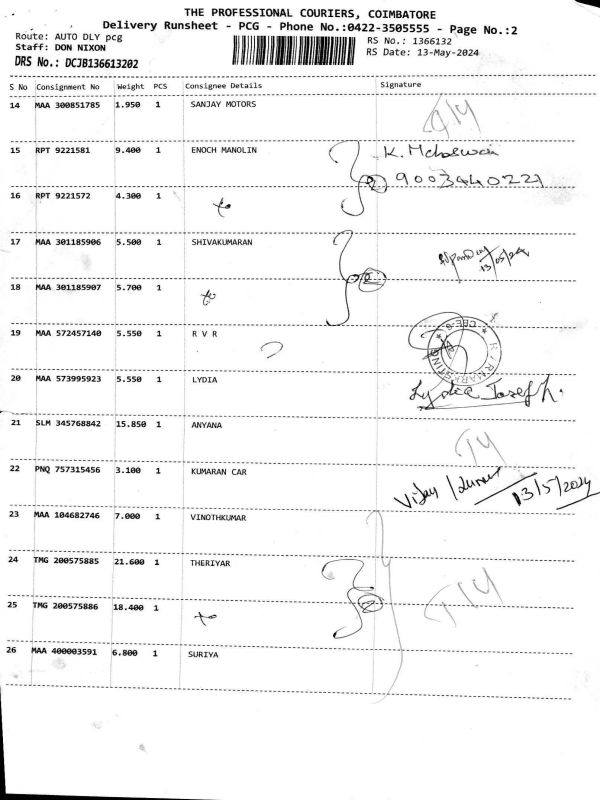 THE PROFESSIONAL COURIERS, COIMBATORE
Delivery Runsheet - PCG - Phone No.:0422-3505555 - Page No.:2
Route: AUTO DLY pcg
RS No.: 1366132
Staff: DON NIXON
RS Date: 13-May-2024
DRS No.: DCJB136613202
S No Consignment No Weight PCS Consignee Details Signature
14 MAA 300851785 1.950 1 SANJAY MOTORS
15 RPT 9221581 9.400 1 ENOCH MANOLIN K.
9003440221
16 RPT 9221572 4.300 1
17 MAA 301185906 5.500 1 SHIVAKUMARAN
13/05/24
18 MAA 301185907 5.700 1
19 MAA 572457140 5.550 1 R V R
20 MAA 573995923 5.550 1 LYDIA Lydia Joseph.
21 SLM 345768842 15.850 1 ANYANA
22 PNQ 757315456 3.100 1 KUMARAN CAR Vijay Kumar 13/5/2024
23 MAA 104682746 7.000 1 VINOTHKUMAR
24 TMG 200575885 21.600 1 THERIYAR
25 TMG 200575886 18.400 1
26 MAA 400003591 6.800 1 SURIYA